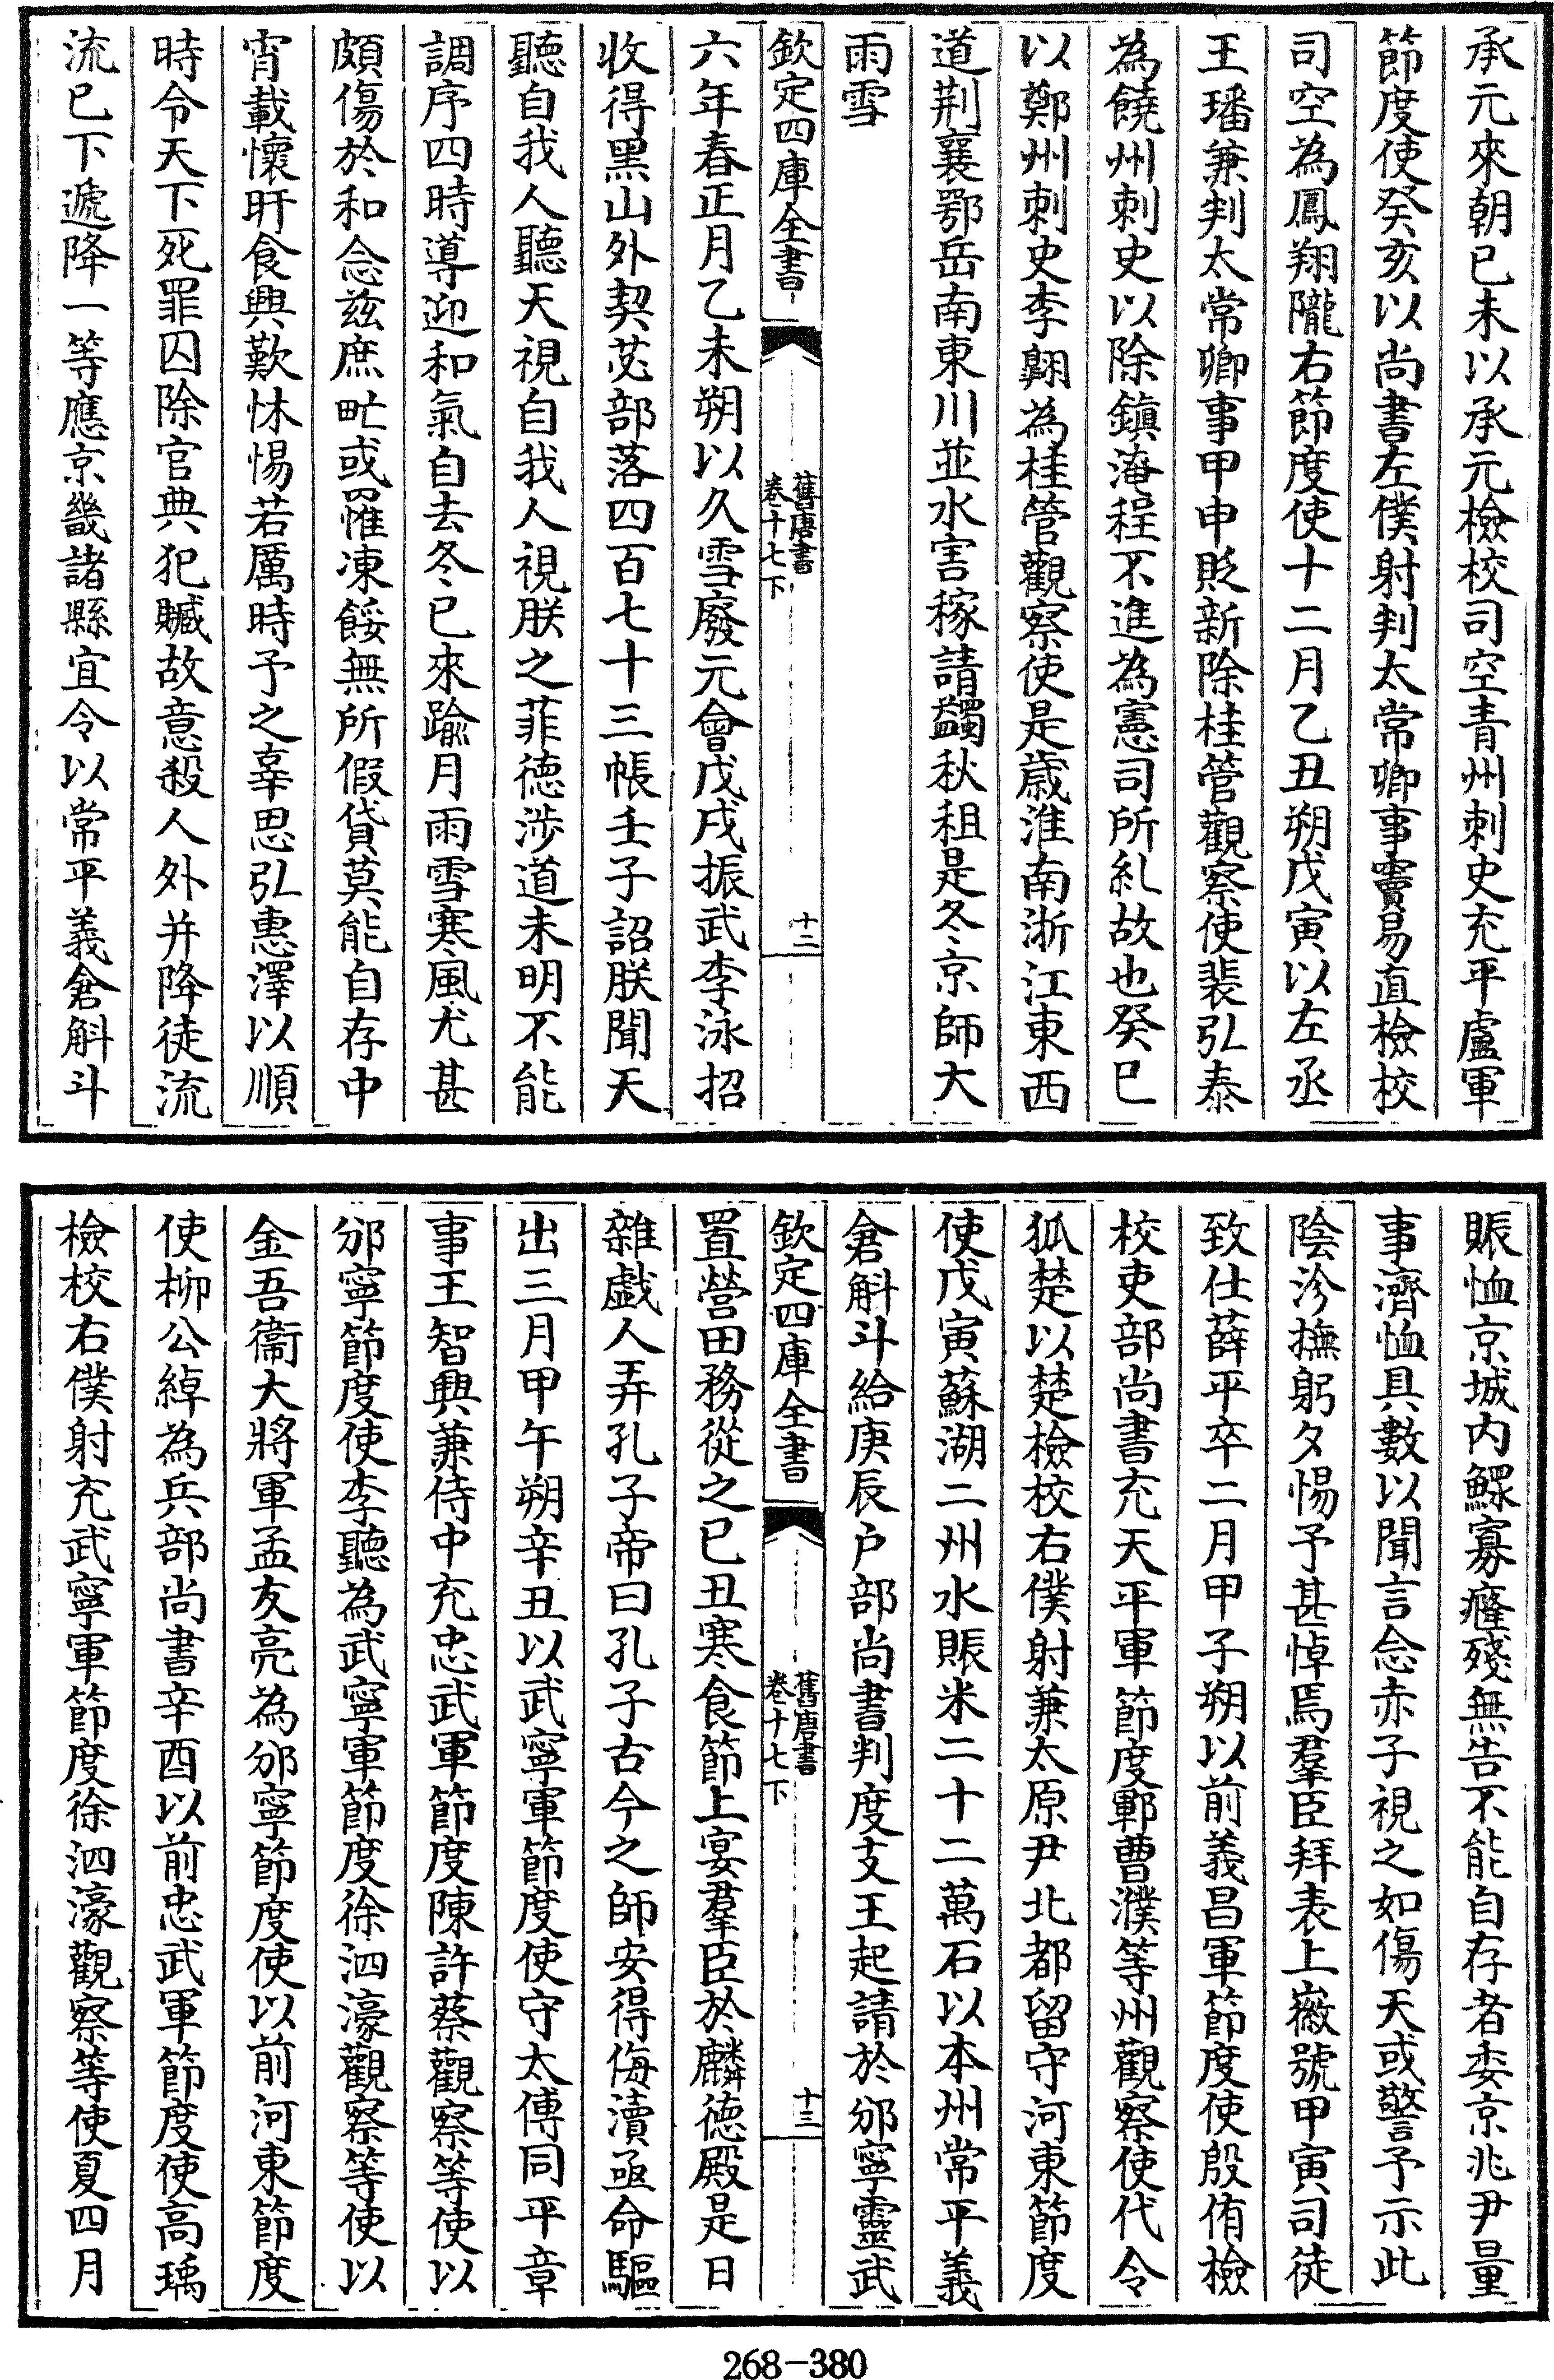 承元來朝已未以承元檢校司空青州刺史充平盧軍
節度使癸亥以尚書左僕射判太常卿事竇易直檢校
司空為鳳翔隴右節度使十二月乙丑朔戊寅以左丞
王璠兼判太常卿事甲申貶新除桂管觀察使裴弘泰
為饒州刺史以除鎮淹程不進為憲司所糺故也癸巳
以鄭州刺史李翺為桂管觀察使是歲淮南浙江東西
道荆襄鄂岳南東川並水害稼請蠲秋租是冬京師大
雨雪
欽定四庫全書
舊唐書
卷十七下
十二
六年春正月乙未朔以久雪廢元會戊戌振武李泳招
收得黑山外契苾部落四百七十三帳壬子詔朕聞天
聽自我人聽天視自我人視朕之菲德涉道未明不能
調序四時導迎和氣自去冬已來踰月雨雪寒風尤甚
頗傷於和念兹庶甿或罹凍餒無所假貸莫能自存中
宵載懷旰食興歎怵惕若厲時予之辜思弘惠澤以順
時令天下死罪囚除官典犯贓故意殺人外并降徒流
流已下遞降一等應京畿諸縣宜令以常平義倉斛斗
賑恤京城内鰥寡癃殘無告不能自存者委京兆尹量
事濟恤具數以聞言念赤子視之如傷天或警予示此
陰沴撫躬夕惕予甚悼焉羣臣拜表上徽號甲寅司徒
致仕薛平卒二月甲子朔以前義昌軍節度使殷侑檢
校吏部尚書充天平軍節度鄆曹濮等州觀察使代令
狐楚以楚檢校右僕射兼太原尹北都留守河東節度
使戊寅蘇湖二州水賑米二十二萬石以本州常平義
倉斛斗給庚辰户部尚書判度支王起請於邠寧靈武
欽定四庫全書
舊唐書
卷十七下
十三
置營田務從之已丑寒食節上宴羣臣於麟德殿是日
雜戲人弄孔子帝曰孔子古今之師安得侮瀆亟命驅
出三月甲午朔辛丑以武寧軍節度使守太傅同平章
事王智興兼侍中充忠武軍節度陳許蔡觀察等使以
邠寧節度使李聽為武寧軍節度徐泗濠觀察等使以
金吾衞大將軍孟友亮為邠寧節度使以前河東節度
使柳公綽為兵部尚書辛酉以前忠武軍節度使高瑀
檢校右僕射充武寧軍節度徐泗濠觀察等使夏四月
268-380